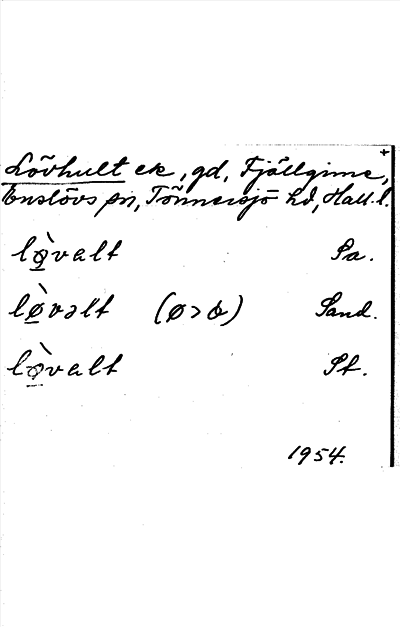 +
Lövhult ek, gd, Fjällgime,
Enslövs sn, Tönnersjö hd, Hall. l.
lø̠̀valt Sa.
lø̠̀vəlt (ø>ò) Sand.
lø̠̀valt St.
1954.